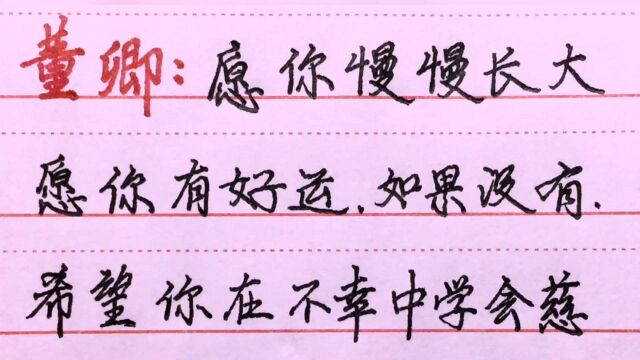 董卿:愿你慢慢长大
愿你有好运,如果没有.
希望你在不幸中学会慈